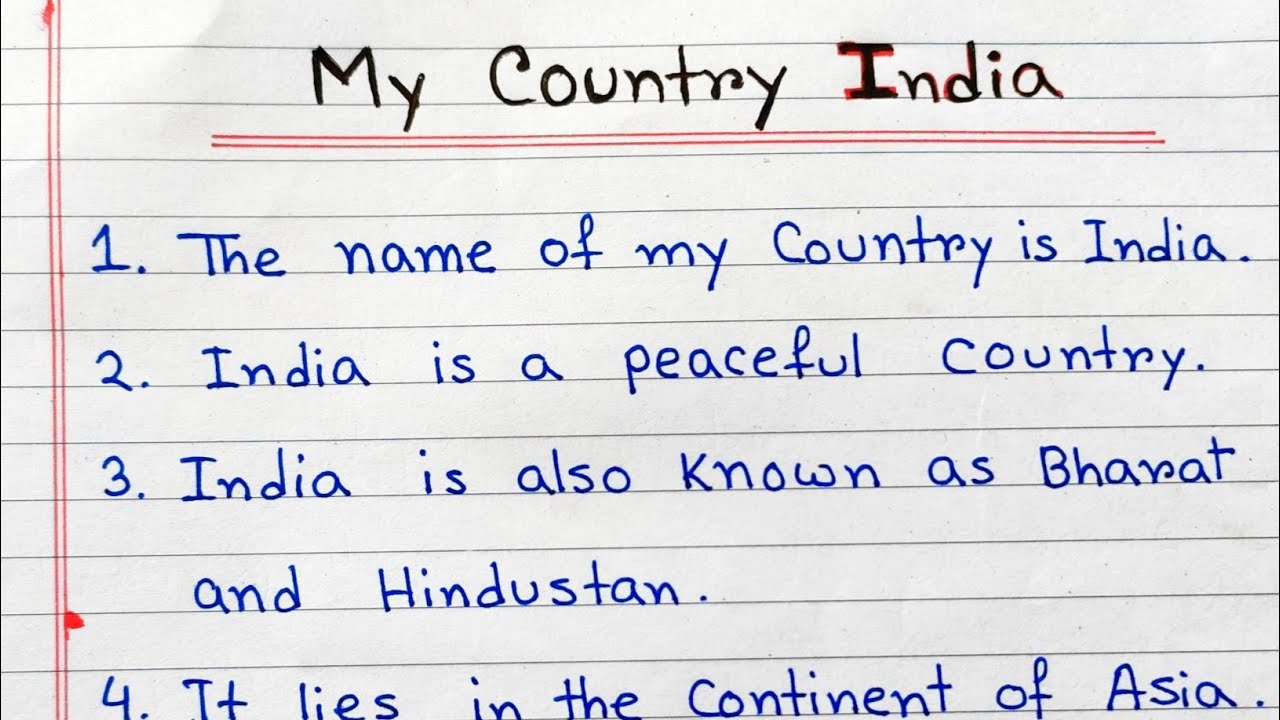 My Country India
1. The name of my Country is India.
2. India is a peaceful Country.
3. India is also Known as Bharat
and Hindustan.
4. It lies in the Continent of Asia.